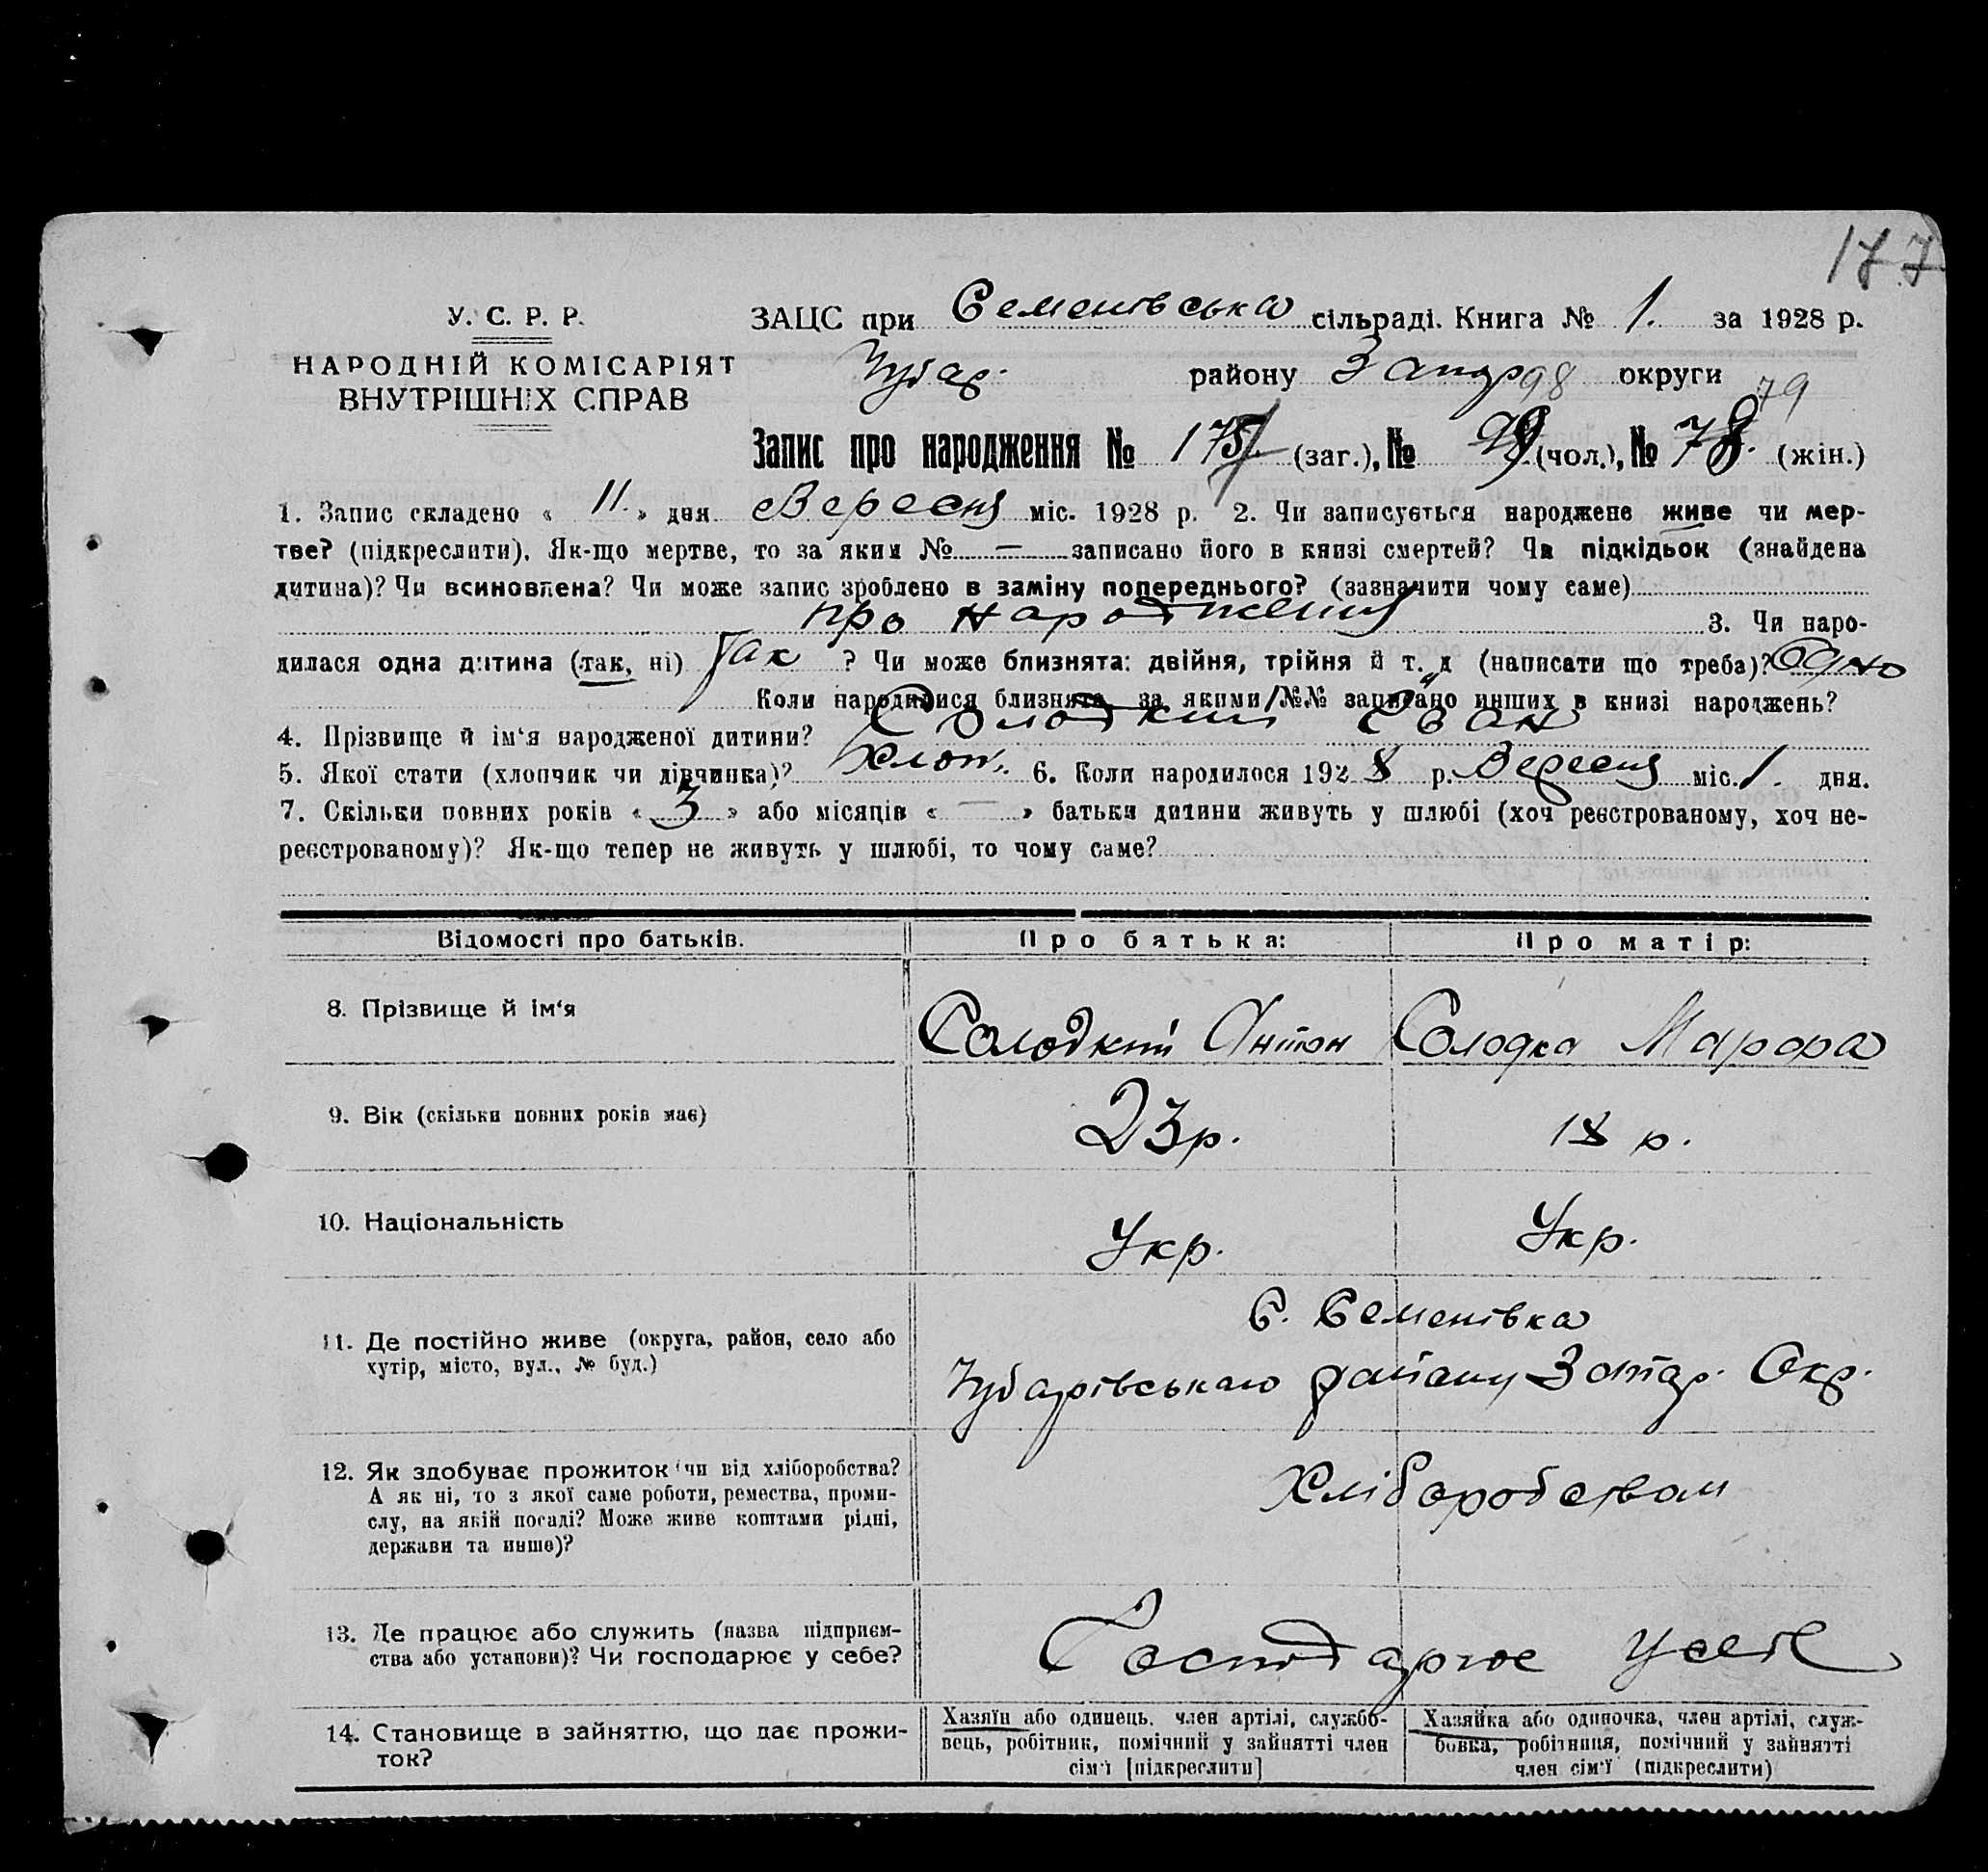 177
У. С. Р. Р.
НАРОДНІЙ КОМІСАРІЯТ
ВНУТРІШНІХ СПРАВ
ЗАЦС при Семенівська сільраді. Книга № 1. за 1928 р.
Чубар. району Запор округи
98 79
Запис про народження № 175 (заг.), № (чол.), № 78. (жін.)
1. Запис складено « 11. » дня Вересня міс. 1928 р. 2. Чи записується народжене живе чи мер-
тве? (підкреслити). Як-що мертве, то за яким № — записано його в книзі смертей? Чи підкідьок (знайдена
дитина)? Чи всиновлена? Чи може запис зроблено в заміну попереднього? (зазначити чому саме)
про народження 3. Чи наро-
дилася одна дитина (так, ні) Так ? Чи може близнята: двійня, трійня й т. д (написати що треба)? Одно
Коли народилися близнята, за якими №№ записано инших в книзі народжень?
4. Прізвище й ім‘я народженої дитини? Солодкий Іван
5. Якої стати (хлопчик чи дівчинка)? Хлоп. 6. Коли народилося 1928 р. Вересня міс. 1. дня.
7. Скільки повних років « 3 » або місяців « — » батьки дитини живуть у шлюбі (хоч реєстрованому, хоч не-
реєстрованому)? Як-що тепер не живуть у шлюбі, то чому саме?
Відомості про батьків. Про батька: Про матір:
8. Прізвище й ім‘я Солодкий Антон Солодка Марфа
9. Вік (скільки повних років має) 23 р. 18 р.
10. Національність Укр. Укр.
11. Де постійно живе (округа, район, село або
хутір, місто, вул., № буд.)
С. Семенівка
Чубарівського району Запор. Окр.
12. Як здобуває прожиток чи від хліборобства?
А як ні, то з якої саме роботи, ремества, проми-
слу, на якій посаді? Може живе коштами рідні,
держави та инше)?
Хліборобством
13. Де працює або служить (назва підприєм-
ства або установи)? Чи господарює у себе?
Господарює у себе
14. Становище в зайняттю, що дає прожи-
ток?
Хазяїн або одинець, член артілі, службо-
вець, робітник, помічний у зайнятті член
сім‘ї [підкреслити]
Хазяйка або одиночка, член артілі, служ-
бовка, робітниця, помічний у зайнятті
член сім‘ї (підкреслити)